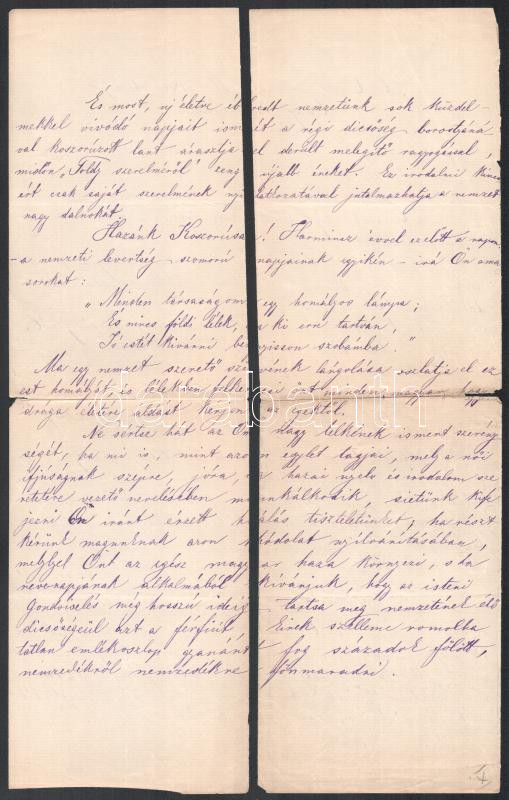 És most, uj életre ébredt nemzetünk sok küzdel-
mekkel vivódó napjait ismét a régi dicsőség borostyáná
val koszorúzott lant árasztja el derült melegítő ragyogással,
midőn „Toldy szerelméről" zeng újabb éneket. Ez irodalmi kincs
ért csak saját szerelmének nyilatkozatával jutalmazhatja a nemzet
nagy dalnokát.
Hazánk Koszorúsa! Harmincz évvel ezelőtt a
- a nemzeti levertség szomorú napjainak egyikén - írá Ön ama
sorokat:
„Minden társaságom egy homályos lámpa;
És nincs földi lélek, a ki érni tartván,
Jó estét kivánni benyisson szobámba."
Ma egy nemzet szerető szivének lángolása oszlatja el ez
est homályát és lélekben fölkeresi őt minden magyar, hogy
drága életére áldást kérjen az egektől.
Ne sértse hát az Ön nagy lelkének ismert szerény
ségét, ha mi is, mint azon egylet tagjai, mely a női
ifjúságnak szépre, jóra, a hazai nyelv és irodalom sze
retetére vezető nevelésében munkálkodik, sietünk kife
jezni Ön iránt érzett hálás tiszteletünket, ha részt
kérünk magunknak azon hódolat nyilvánításában,
melylyel Önt az egész magyar haza környezi, s ha
nevenapjának alkalmából kivánjuk, hogy az isteni
Gondviselés még hosszu ideig tartsa meg nemzetének élő
dicsőségéül azt a férfiút kinek szelleme romolha
tatlan emlékoszlop gyanánt fog századok fölött,
nemzedékről nemzedékre fönmaradni.
darabanth